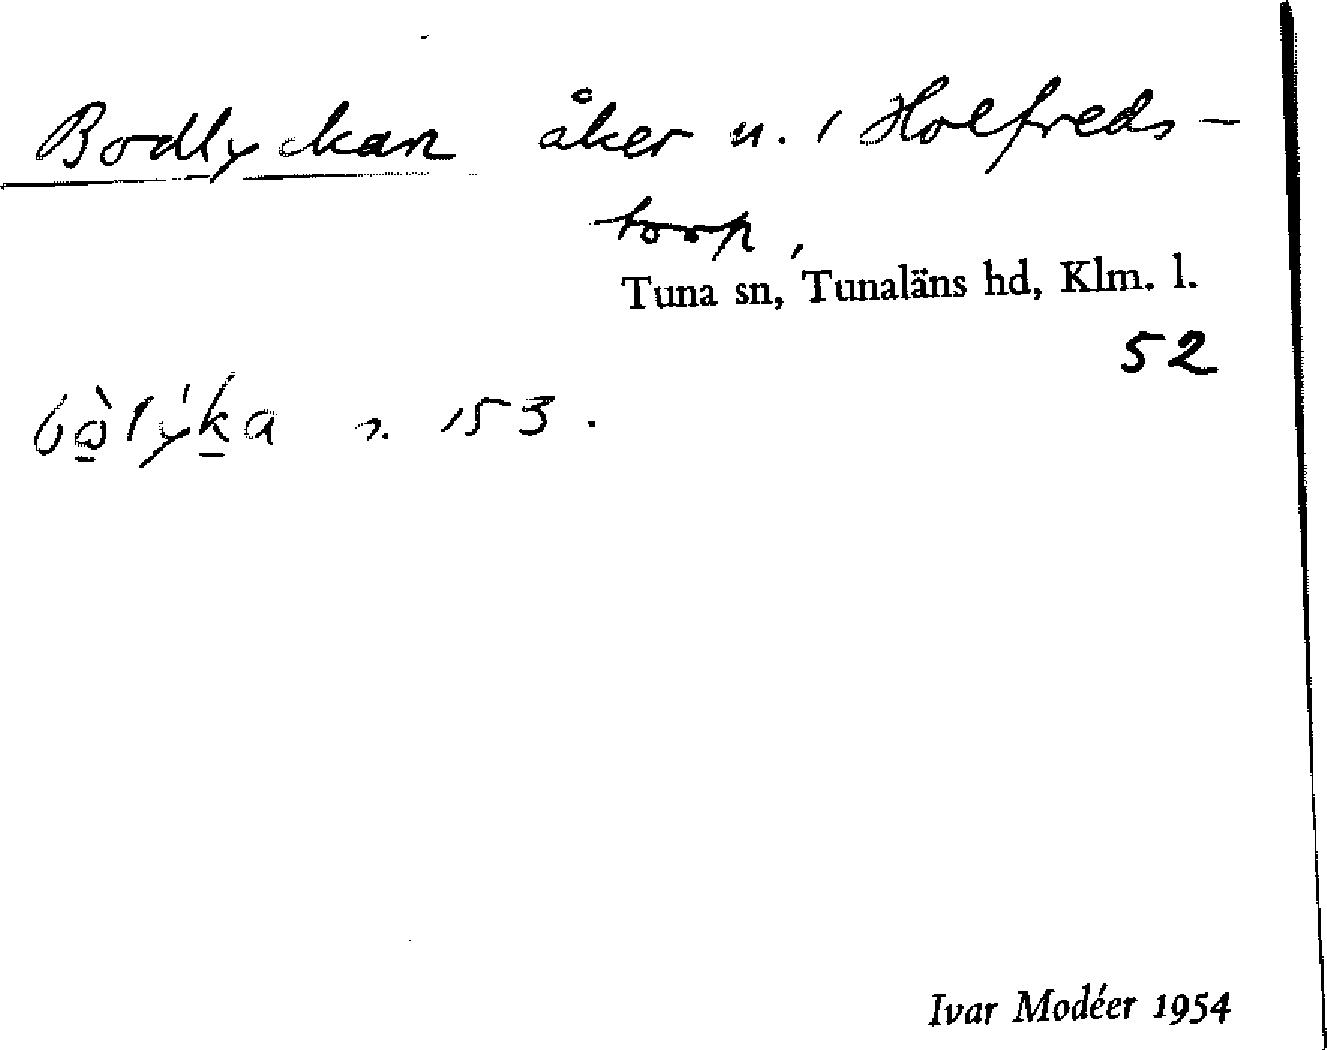 Bodlyckan åker n. i Holfreds-
torp,
Tuna sn, Tunaläns hd, Klm. l.
52
bòlýka n. 153.
Ivar Modéer 1954